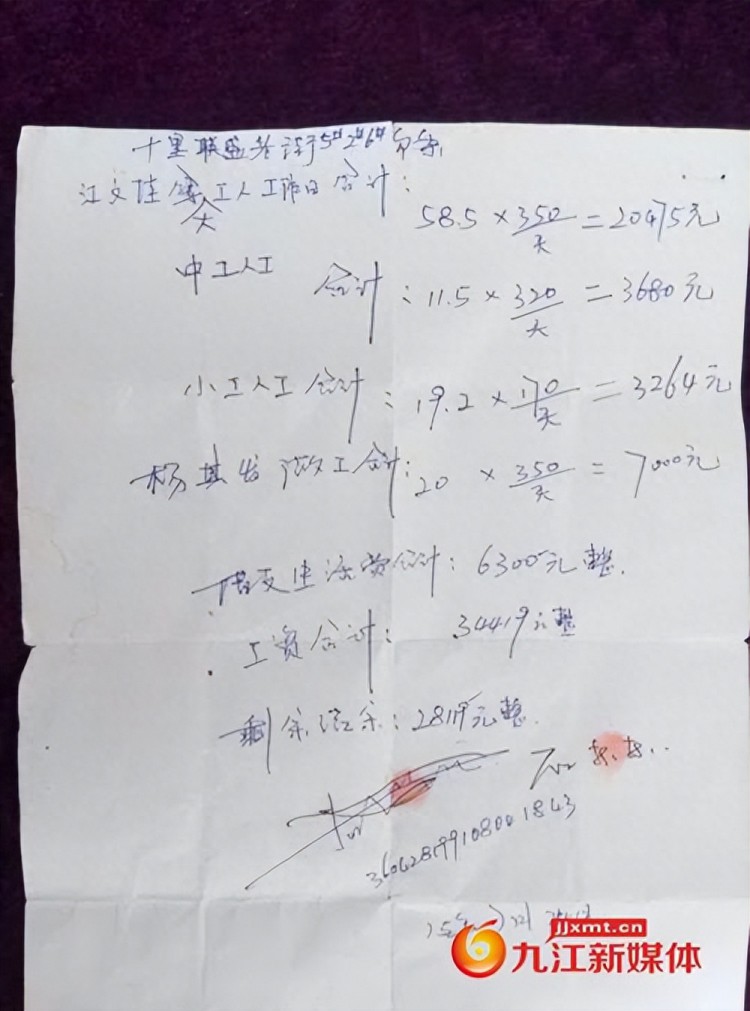 十里联盛 5#2#6#
江文佳 大工人工作日合计: 58.5 × 350/天 = 20475元
中工人工 合计: 11.5 × 320/天 = 3680元
小工人工合计: 19.2 × 170/天 = 3264元
杨其发做工合计: 20 × 350/天 = 7000元
借支生活费合计: 6300元整.
工资合计: 34419元整
剩余: 28119元整.
jjxmt.cn
九江新媒体